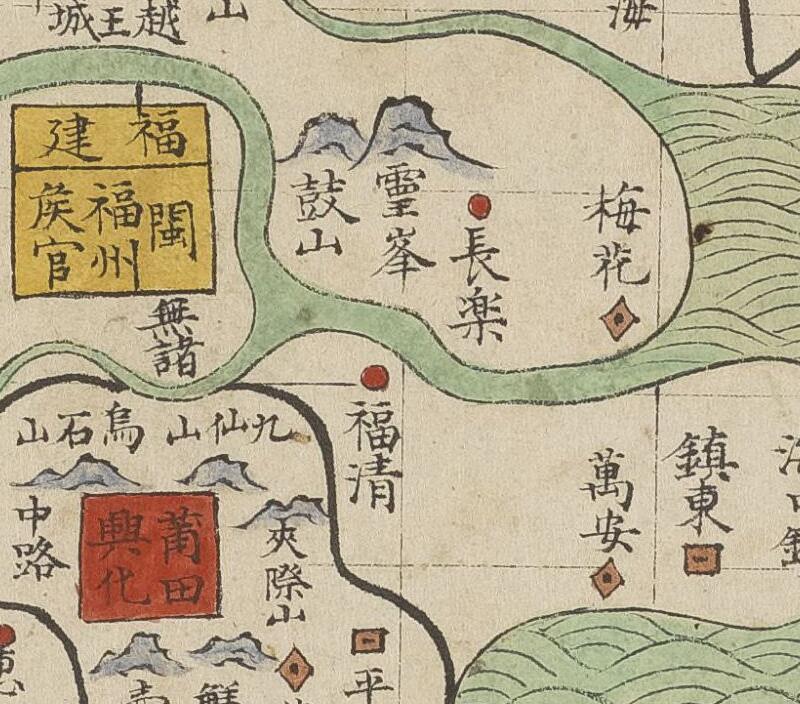 越王城
山
海
福建
閩
福州
侯官
無諸
鼓山
霊峯
長楽
梅花
福清
九仙山
烏石山
中路
莆田
興化
夾際山
萬安
鎮東
平